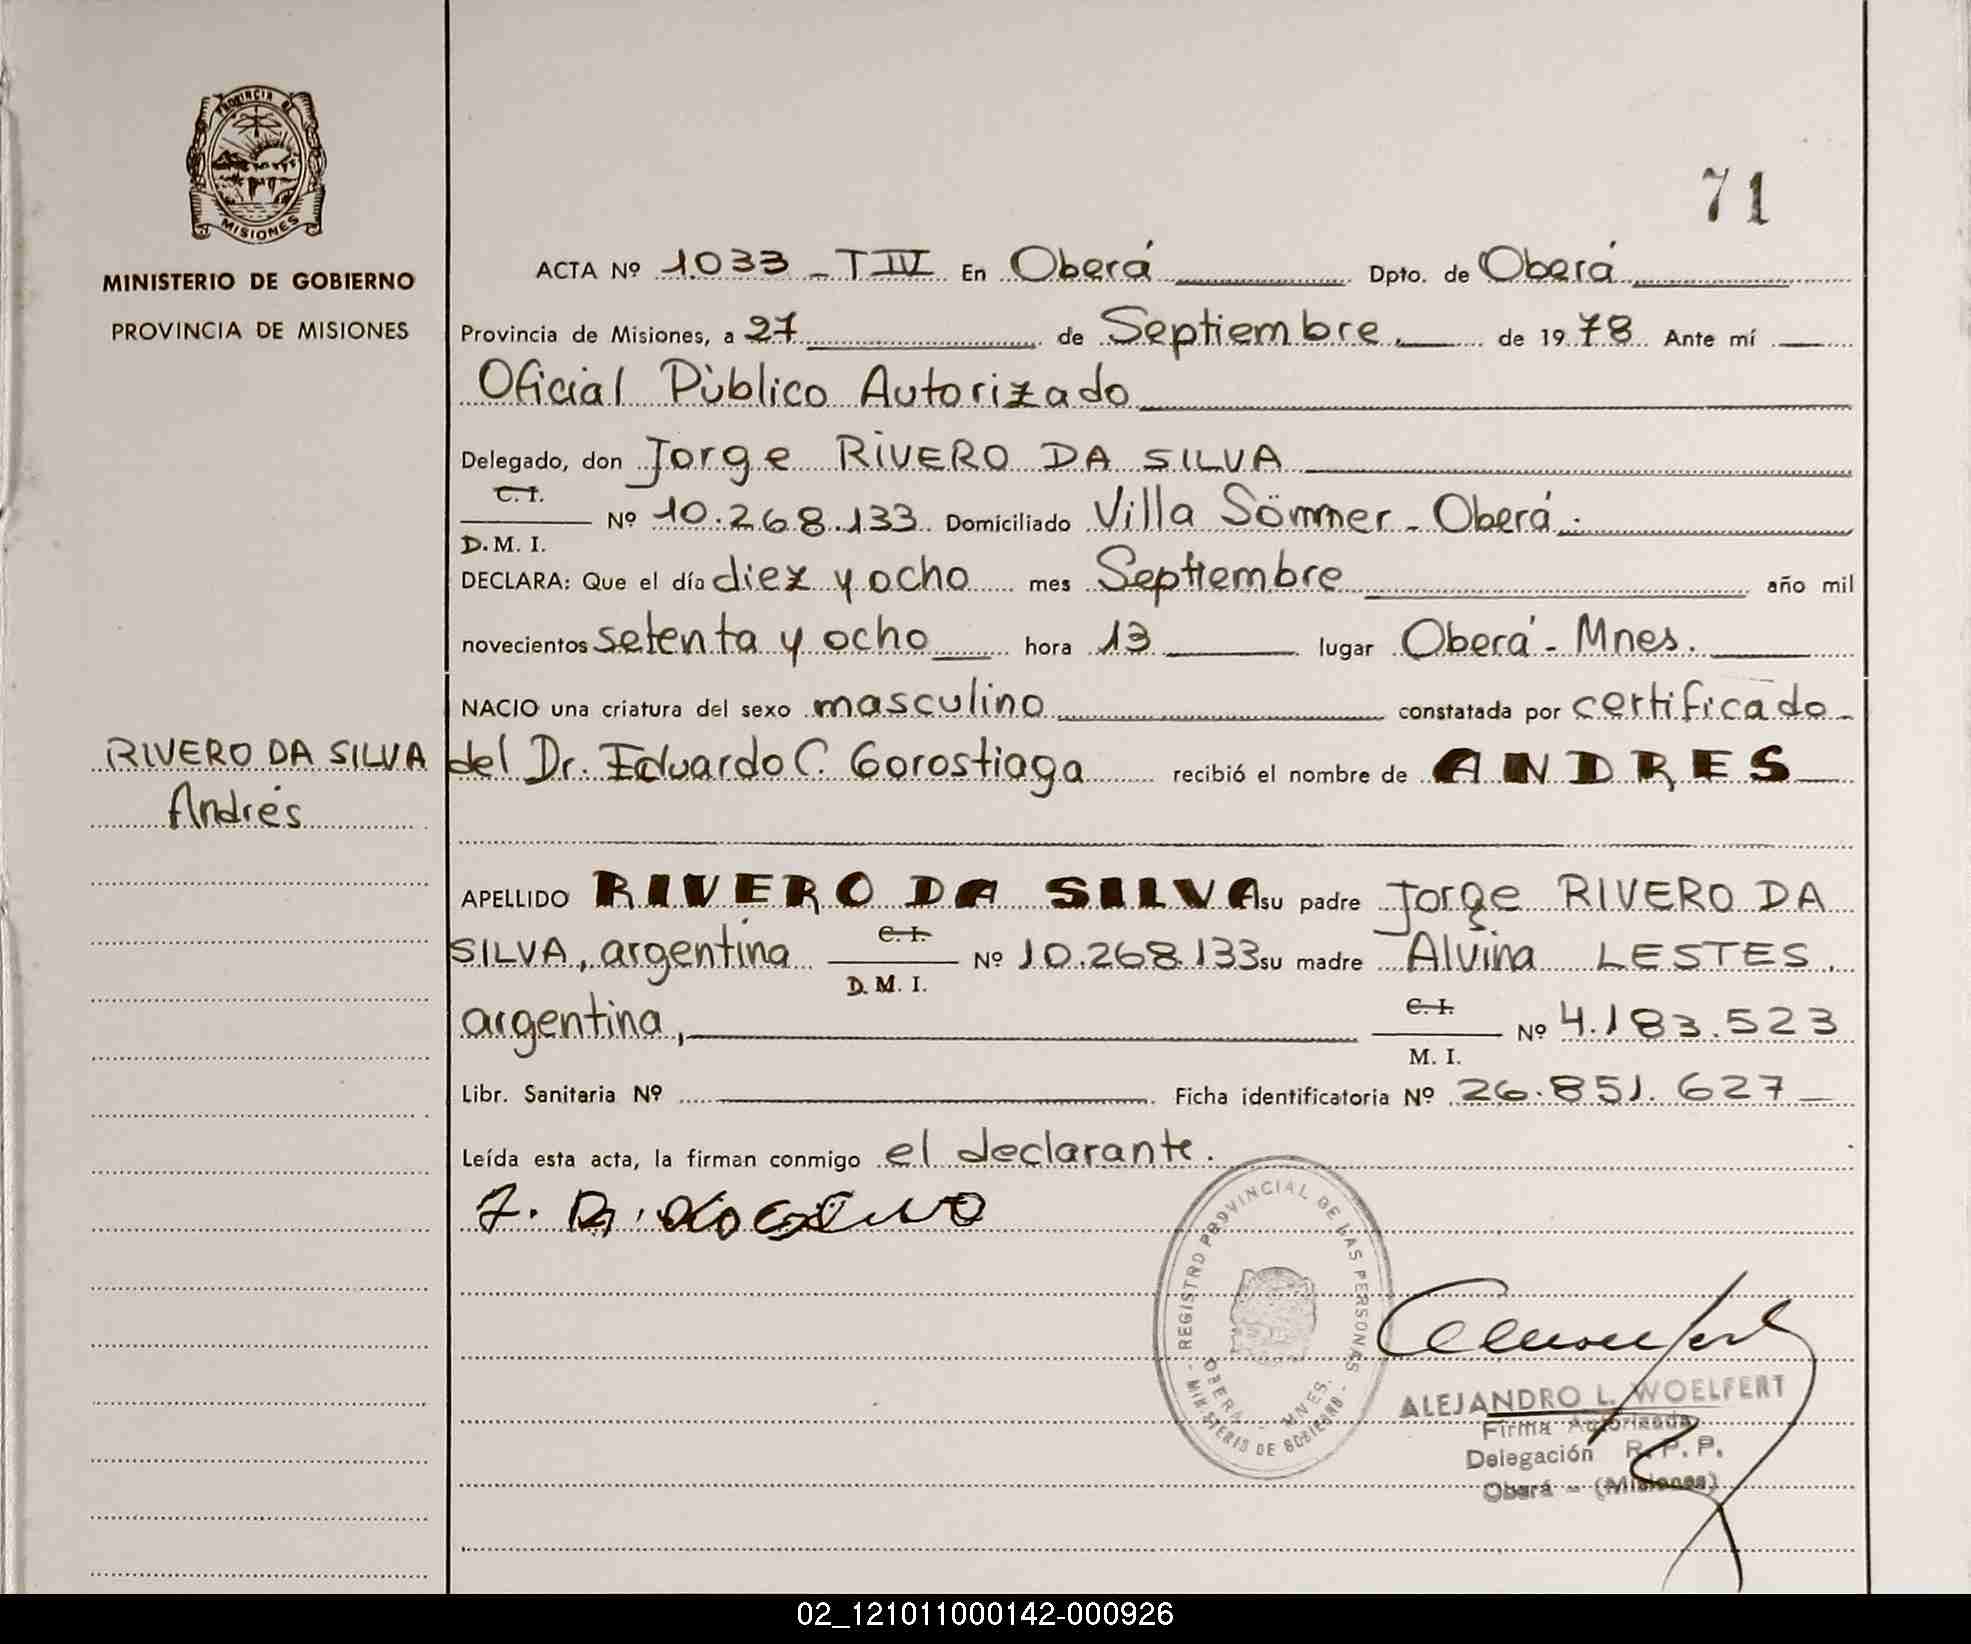 PROVINCIA DE
MISIONES
MINISTERIO DE GOBIERNO
PROVINCIA DE MISIONES
71
ACTA Nº 1033 - T IV En Oberá Dpto. de Oberá
Provincia de Misiones, a 27 de Septiembre. de 1978 Ante mí
Oficial Público Autorizado
Delegado, don Jorge RIVERO DA SILVA
C. I.
D. M. I. Nº 10.268.133 Domiciliado Villa Sömmer - Oberá.
DECLARA: Que el día diez y ocho mes Septiembre año mil
novecientos setenta y ocho hora 13 lugar Oberá - Mnes.
NACIO una criatura del sexo masculino constatada por certificado
RIVERO DA SILVA
Andrés
del Dr. Eduardo C. Gorostiaga recibió el nombre de ANDRES
APELLIDO RIVERO DA SILVA su padre Jorge RIVERO DA
SILVA, argentina C. I. D. M. I. Nº 10.268.133 su madre Alvina LESTES,
argentina, C. I. M. I. Nº 4.183.523
Libr. Sanitaria Nº Ficha identificatoria Nº 26.851.627
Leída esta acta, la firman conmigo el declarante.
REGISTRO PROVINCIAL DE LAS PERSONAS
OBERA - MNES.
- MINISTERIO DE GOBIERNO -
ALEJANDRO L. WOELFERT
Firma Autorizada
Delegación R. P. P.
Oberá - (Misiones)
02_121011000142-000926